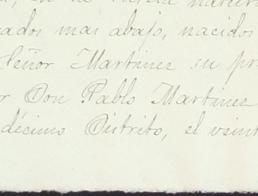 en la
cados mas abajo, nacidos
Señor Martinez su pr
r Don Pablo Martinez
décimo Distrito, el veint